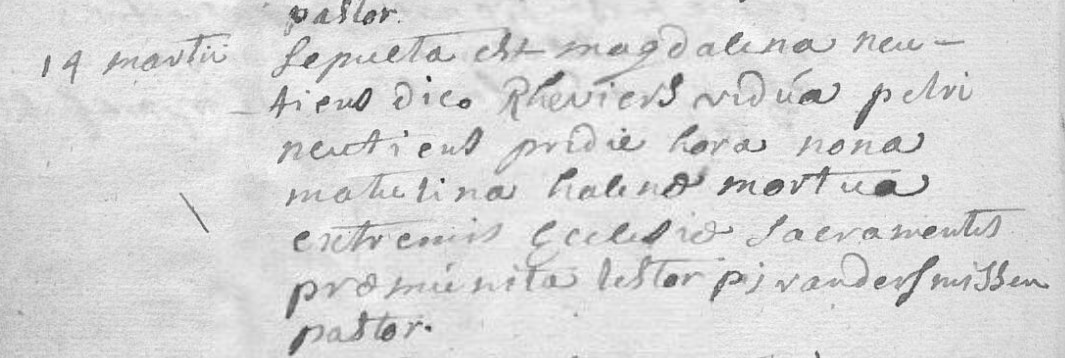 pastor.
14 martii sepulta est magdalena neu-
tiens dico Rheviers vidúa petri
neutiens pridie hora nona
matutina halenæ mortua
extremis Ecclesiæ sacramentis
præmúnita testor pj vanderSmissen
pastor.